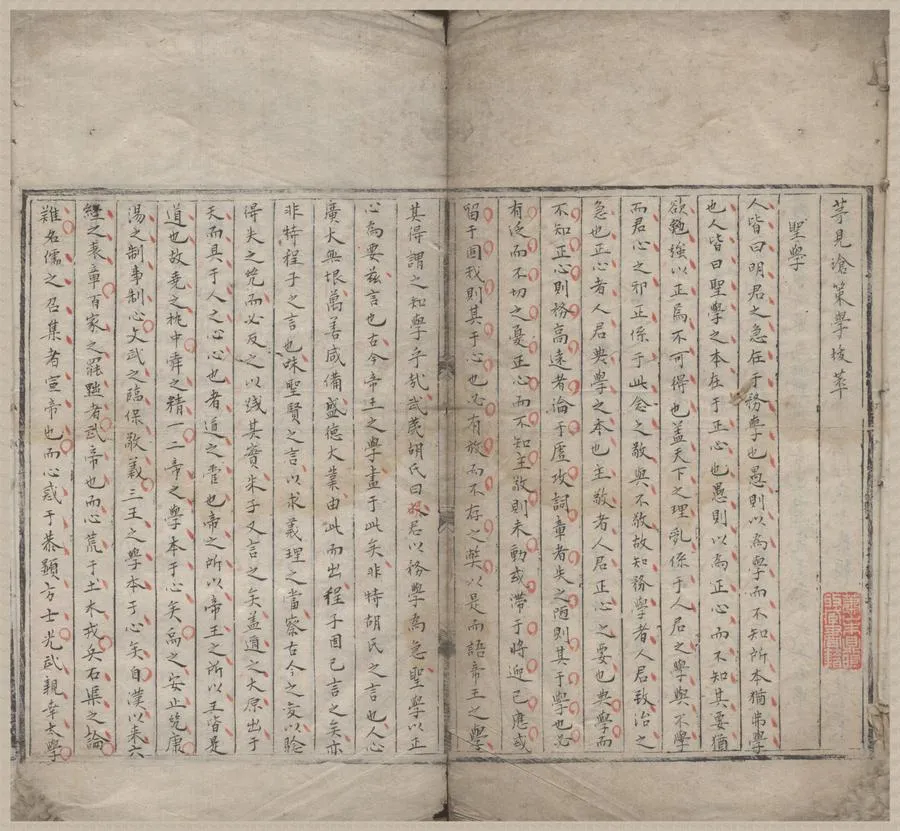 管見滄策學拔萃
聖學
人皆曰明君之急在于務學也愚則以為學而不知所本猶弗學
也人皆曰聖學之本在于正心也愚則以為正心而不知其要猶
欲勉強以正焉不可得也盖天下之理乱係于人君之學與不學
而君心之邪正係于此念之敬與不敬故知務學者人君致治之
急也正心者人君典學之本也主敬者人君正心之要也典學而
不知正心則務高遠者淪于虛攻詞章者失之陋則其于學也必
有泛而不切之憂正心而不知主敬則未動或滯于將迎已應或
留于固我則其于心也必有放而不存之獘以是而語帝王之學
其得謂之知學乎哉武夷胡氏曰人君以務學為急聖學以正
心為要兹言也古今帝王之學盡于此矣非特胡氏之言也人心
廣大無垠萬善咸備盛德大業由此而出程子固已言之矣亦
非特程子之言也味聖賢之言以求義理之當察古今之变以驗
得失之㡬而必反之以踐其實朱子又言之矣盖道之大原出于
天而具于人之心心也者道之管也帝之所以帝王之所以王皆是
道也故堯之執中舜之精一二帝之學本于心矣禹之安止㡬康
湯之制事制心文武之臨保敬義三王之學本于心矣自漢以来六
經之表章百家之罷黜者武帝也而心荒于土木戎兵石渠之論
難名儒之召集者宣帝也而心惑于恭顯方士光武親幸太學